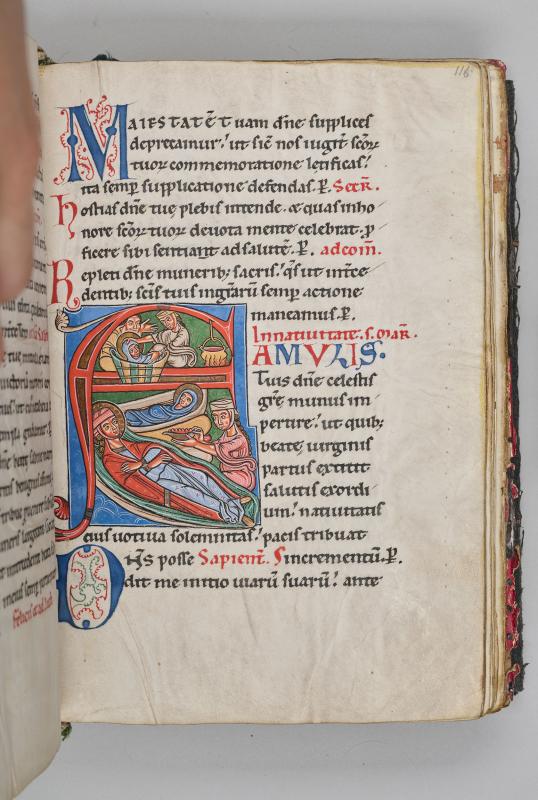 116
MAIESTATĒ Tuam dn̄e supplices
deprecamur.' ut sic̄ nos iugit̄ sc̄oꝝ
tuoꝝ commemoratione letificas.'
ita semꝑ supplicatione defendas. P̲. Secr̄.
hostias dn̄e tuę plebis intende. & quas in ho
nore sc̄oꝝ tuoꝝ deuota mente celebrat. ꝓ
ficere sibi sentiant ad salutē. P̲. ad com̄.
Repleti dn̄e munerib; sacris.' q̄s ut int̄ce
dentib; sc̄is tuis in gr̄arū semꝑ actione
maneamus. P̲.
In natiuitate. s. mar̄.
FAMULIS.
Tuis dn̄e celestis
grē munus im
pertire.' ut quib;
beatę uirginis
partus extitit
salutis exordi
um.' natiuitatis
eius uotiua solemnitas.' pacis tribuat
incrementū. P̲.
D̄N̄S posse Sapient̄. S
dit me initio uiarū suarū.' ante